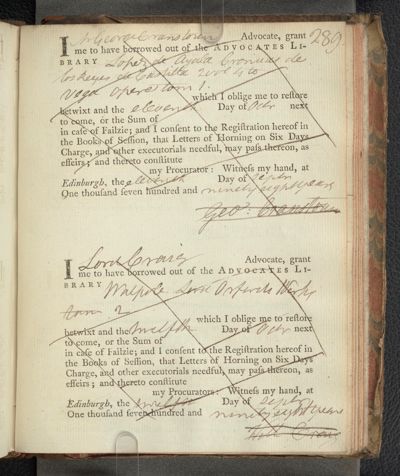 289
I Mr George Cranstoun Advocate, grant
me to have borrowed out of the ADVOCATES LI-
BRARY Lopez de Ayala Cronicas de
los Reyes de Castilla
Vega Opere tom 1.
which I oblige me to restore
betwixt and the eleventh Day of Octr next
to come, or the Sum of
in case of Failzie; and I consent to the Registration hereof in
the Books of Session, that Letters of Horning on Six Days
Charge, and other executorials needful, may pass thereon, as
effeirs; and thereto constitute
my Procurator: Witness my hand, at
Edinburgh, the eleventh Day of Septr
One thousand seven hundred and ninety eight years
Geo: Cranstoun
I Lord Craig Advocate, grant
me to have borrowed out of the ADVOCATES LI-
BRARY Walpole Lord Orford's Works
tom 2
which I oblige me to restore
betwixt and the twelfth Day of Octr next
to come, or the Sum of
in case of Failzie; and I consent to the Registration hereof in
the Books of Session, that Letters of Horning on Six Days
Charge, and other executorials needful, may pass thereon, as
effeirs; and thereto constitute
my Procurator: Witness my hand, at
Edinburgh, the twelfth Day of Septr
One thousand seven hundred and ninety eight years
Craig